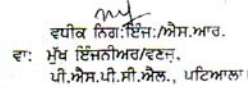 ਵਧੀਕ ਨਿਗ:ਇੰਜ:/ਐਸ.ਆਰ.
ਵਾ: ਮੁੱਖ ਇੰਜਨੀਅਰ/ਵਣਜ,
ਪੀ.ਐਸ.ਪੀ.ਸੀ.ਐਲ., ਪਟਿਆਲਾ